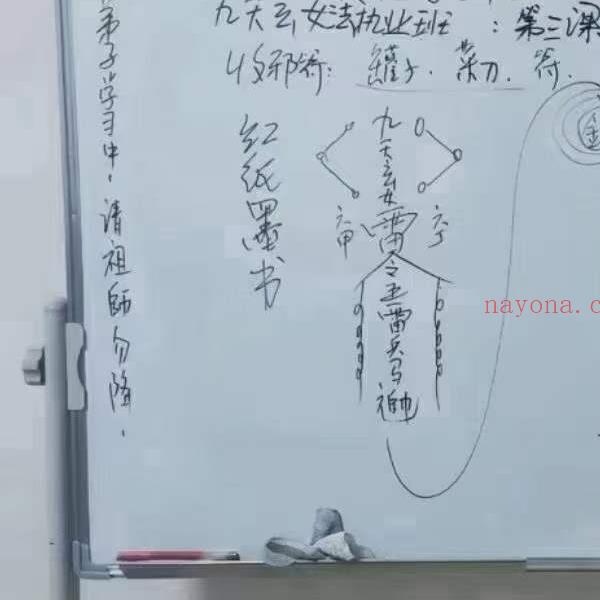 九天玄女法执业班：第三课
收邪符：罐子．菜刀．符．
弟子学习中，请祖師勿降．
红纸墨书
九天玄女雷
六甲
六丁
令五雷兵马
金
nayona.c